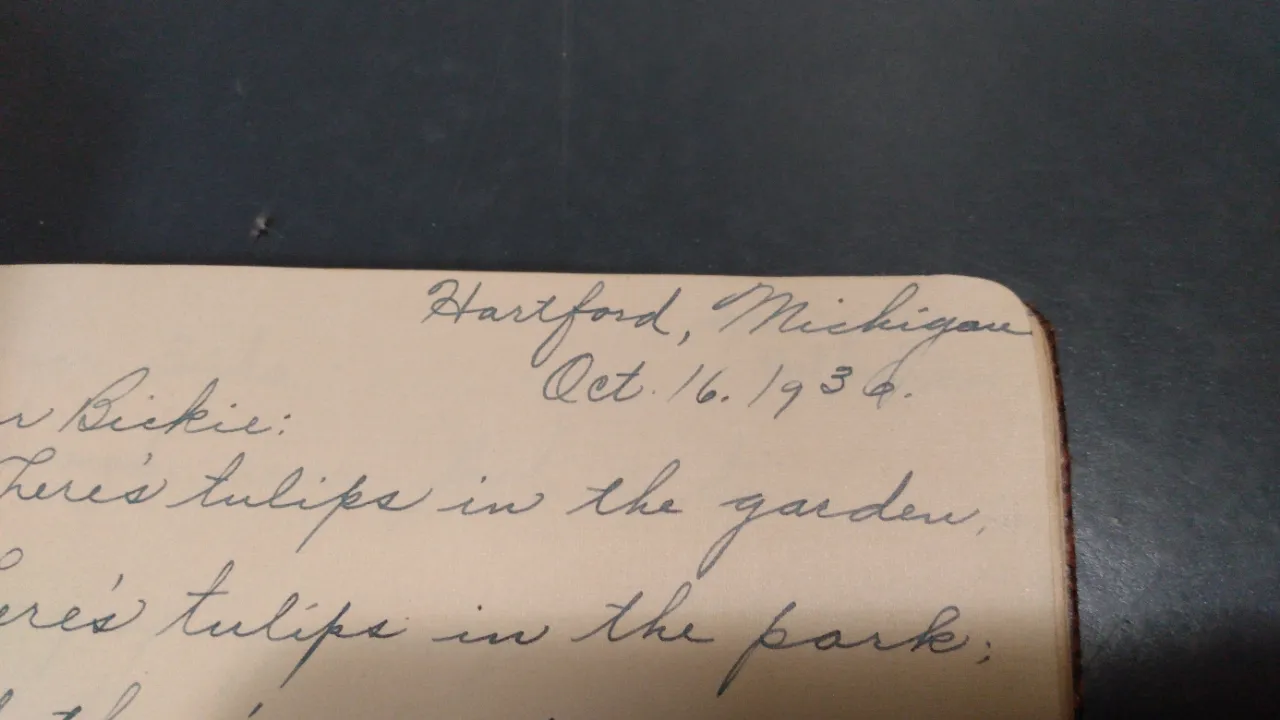 Hartford, Michigan
Oct. 16. 1936.
r Bickie:
here's tulips in the garden,
ere's tulips in the park;